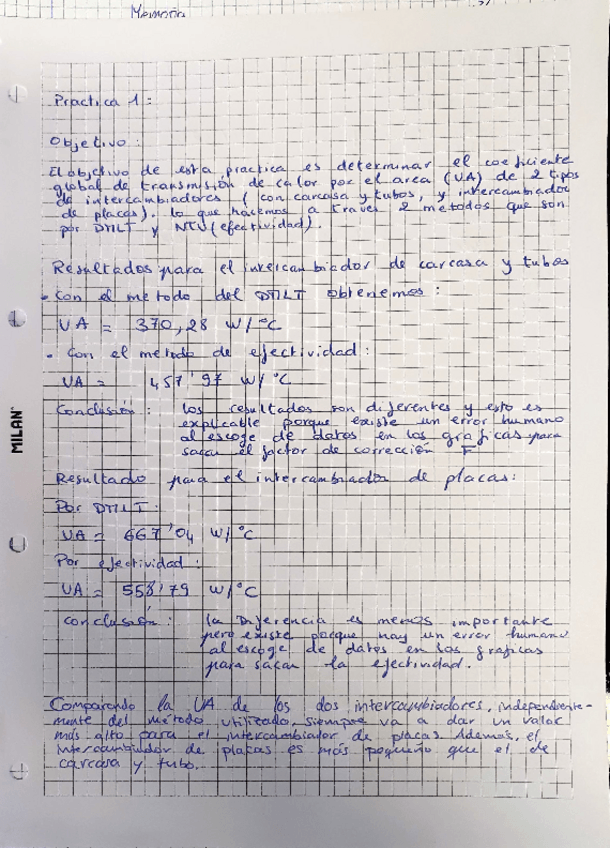 Memoria
Practica 1 :
Objetivo :
El objetivo de esta practica es determinar el coeficiente
global de transmisión de calor por el area (UA) de 2 tipos
de intercambiadores (con carcasa y tubos, y intercambiador
de placas). lo que hacemos a traves 2 metodos que son
por DTILT y NTU (efectividad).
Resultados para el intercambiador de carcasa y tubos
• Con el metodo del DTILT obtenemos :
UA = 370,28 W/°C
• Con el metodo de efectividad :
UA = 457'97 W/°C
Conclusión : los resultados son diferentes y esto es
explicable porque existe un error humano
al escoge de datos en los graficas para
sacar el factor de corrección F
Resultado para el intercambiador de placas:
Por DTILT :
UA = 667'04 W/°C
Por efectividad :
UA = 558'79 W/°C
conclusión : la Diferencia es menos importante
pero existe porque hay un error humano
al escoge de datos en las graficas
para sacar la efectividad.
Comparando la UA de los dos intercambiadores, independiente-
mente del método utilizado, siempre va a dar un valor
más alto para el intercambiador de placas. Además, el
intercambiador de placas es más pequeño que el de
carcasa y tubo.
MILAN